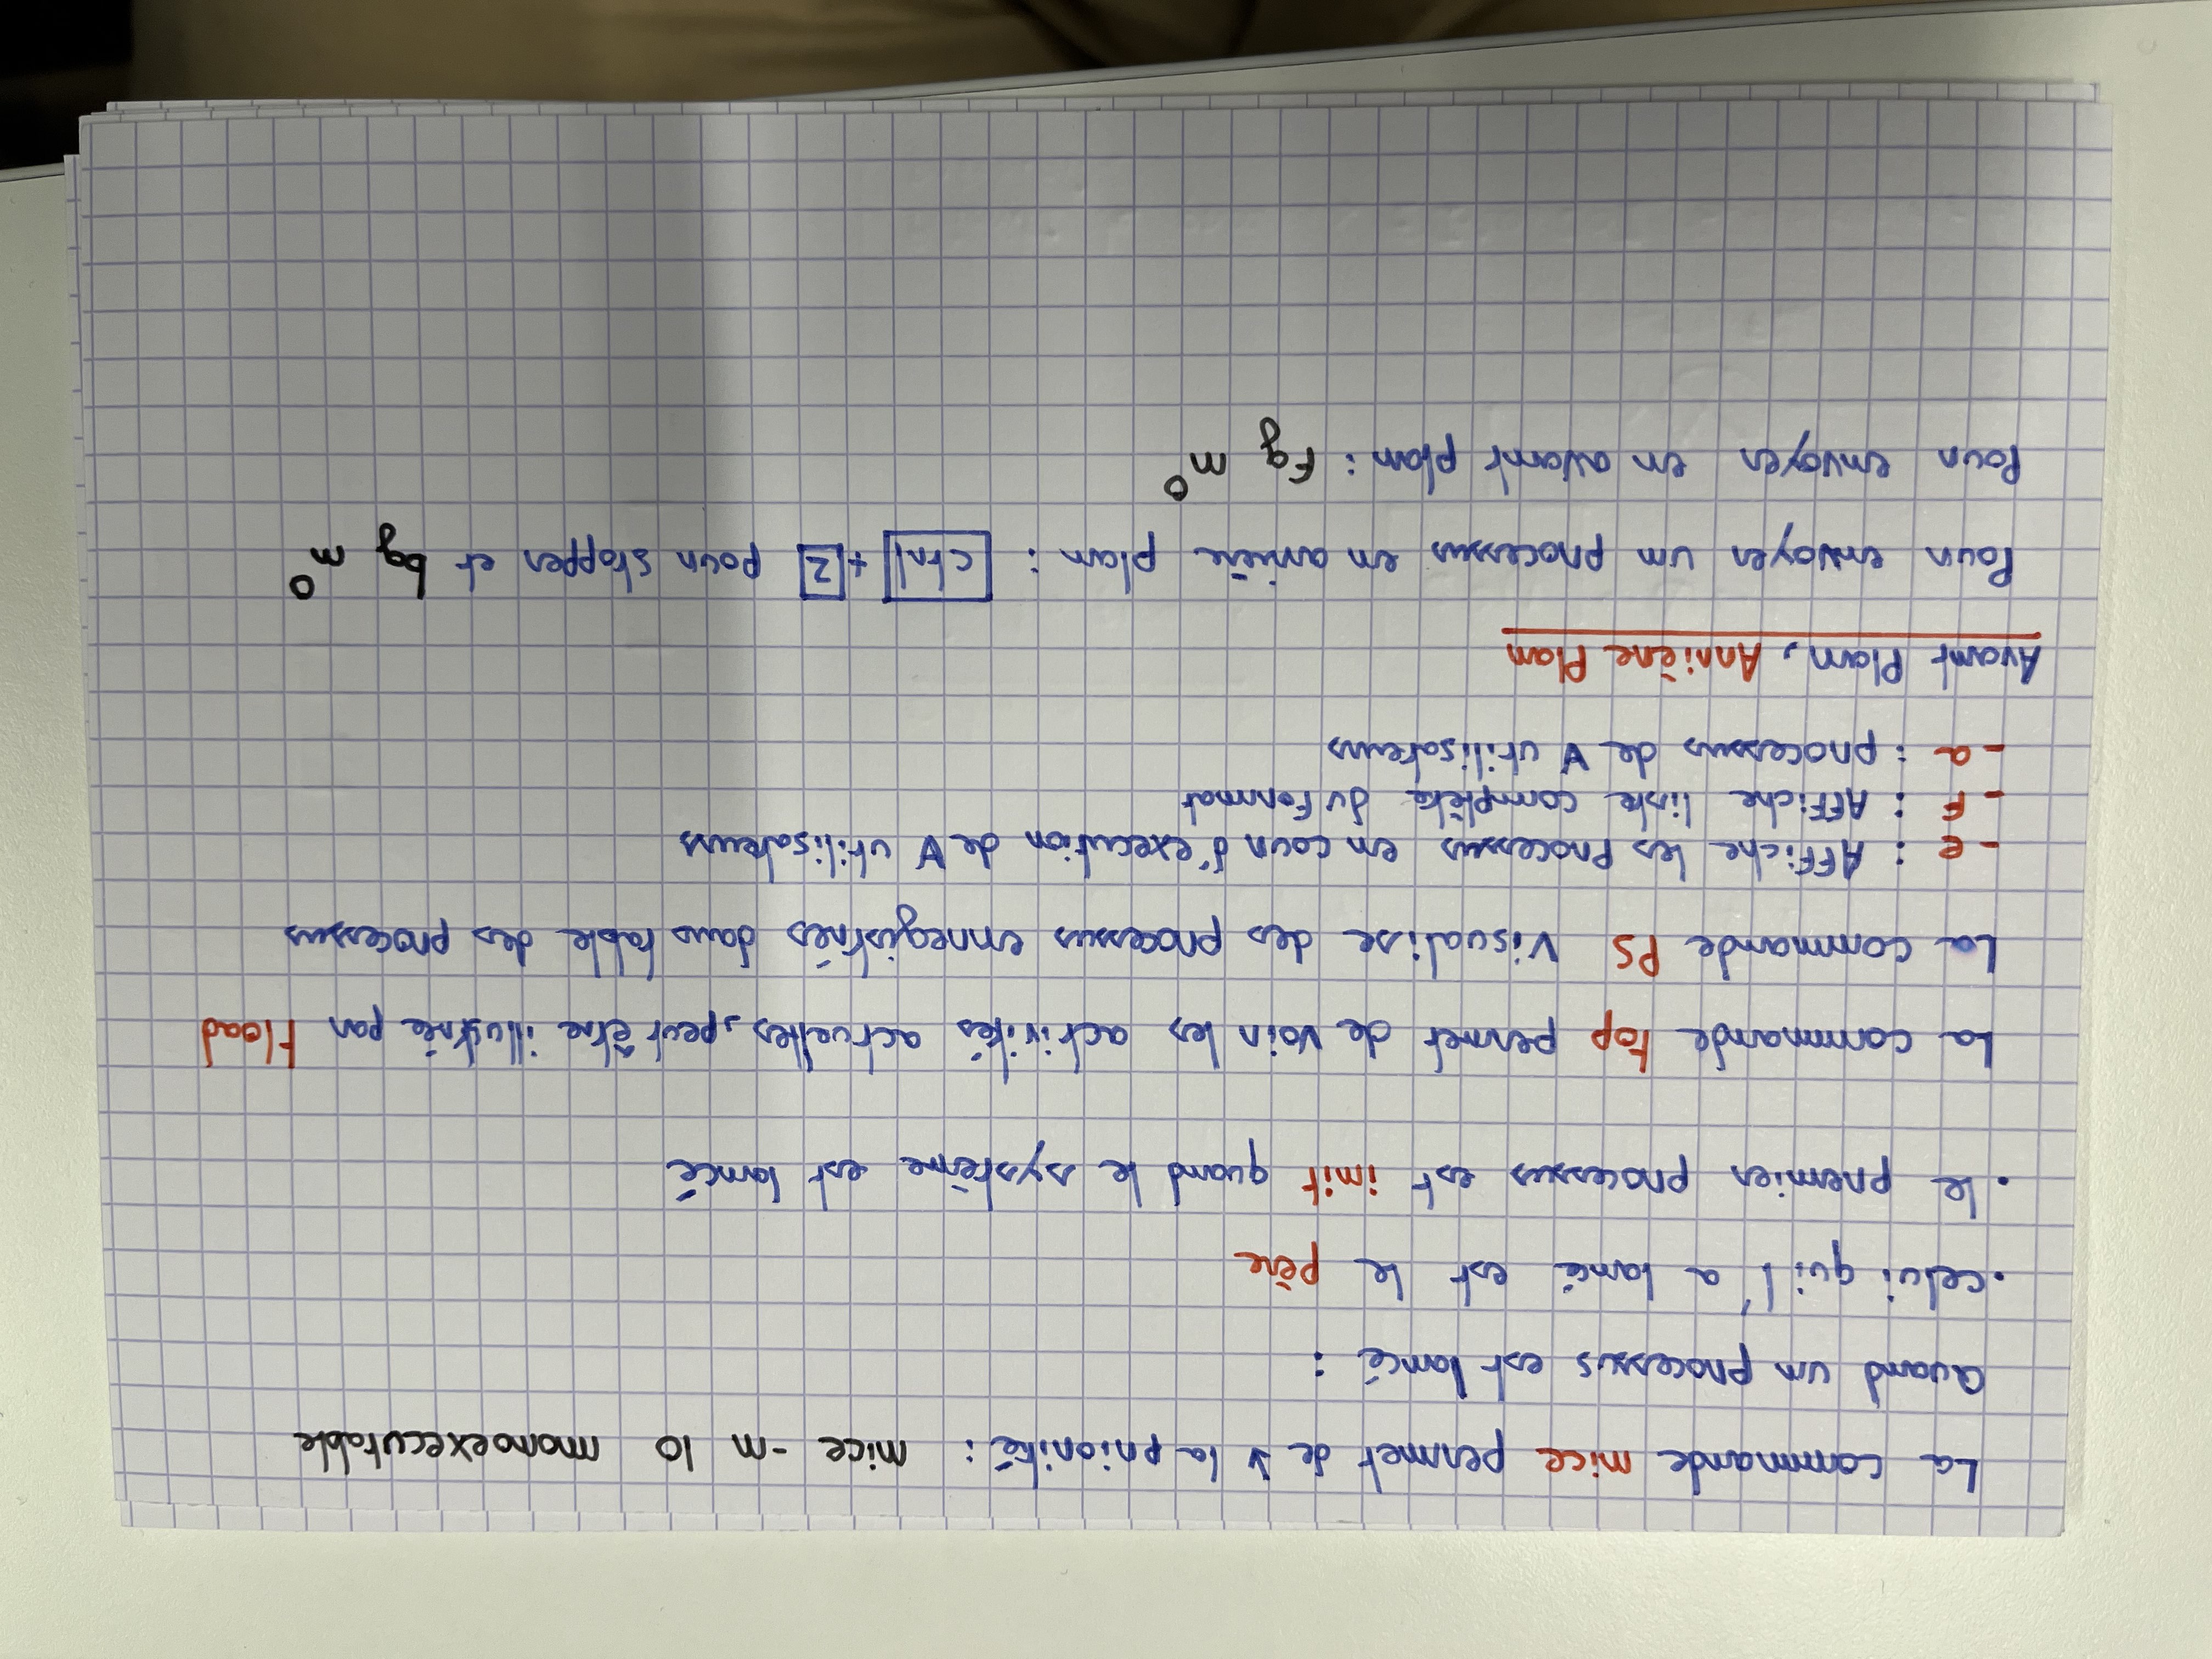 La commande nice permet de ↓ la priorité : nice -n 10 monexecutable
Quand un processus est lancé :
• celui qui l'a lancé est le père
• le premier processus est init quand le système est lancé
La commande top permet de voir les activités actuelles, peut être illustrée par Head
La commande PS visualise des processus enregistrés dans table des processus
- e : Affiche les Processus en cour d'execution de ∀ utilisateurs
- F : Affiche liste complète du format
- a : processus de ∀ utilisateurs
Avant Plan, Arrière Plan
Pour envoyer un processus en arrière plan : ctrl + Z pour stopper et bg n°
Pour envoyer en avant plan : Fg n°